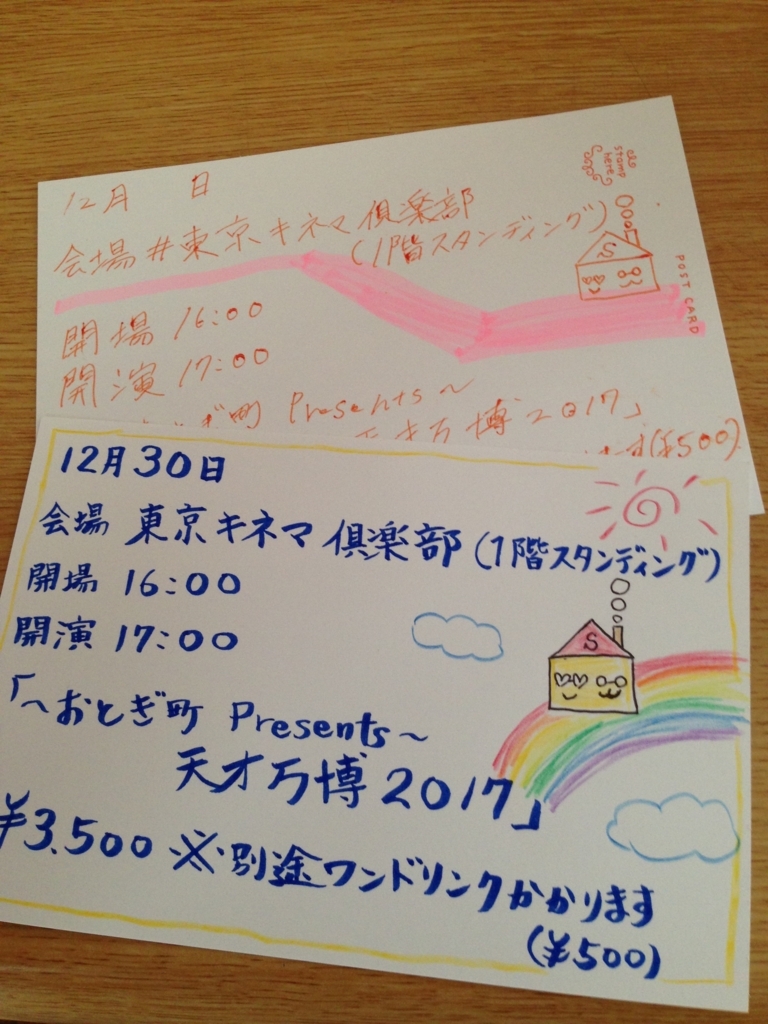 12月 日
会場 #東京キネマ倶楽部
(1階スタンディング)
開場 16:00
開演 17:00
ぎ町 Presents～
天才万博2017」
(¥500)
stamp
here
POST CARD
S
12月30日
会場 東京キネマ倶楽部 (1階スタンディング)
開場 16:00
開演 17:00
「～おとぎ町 Presents～
天才万博2017」
¥3.500 ※別途ワンドリンクかかります
(¥500)
S